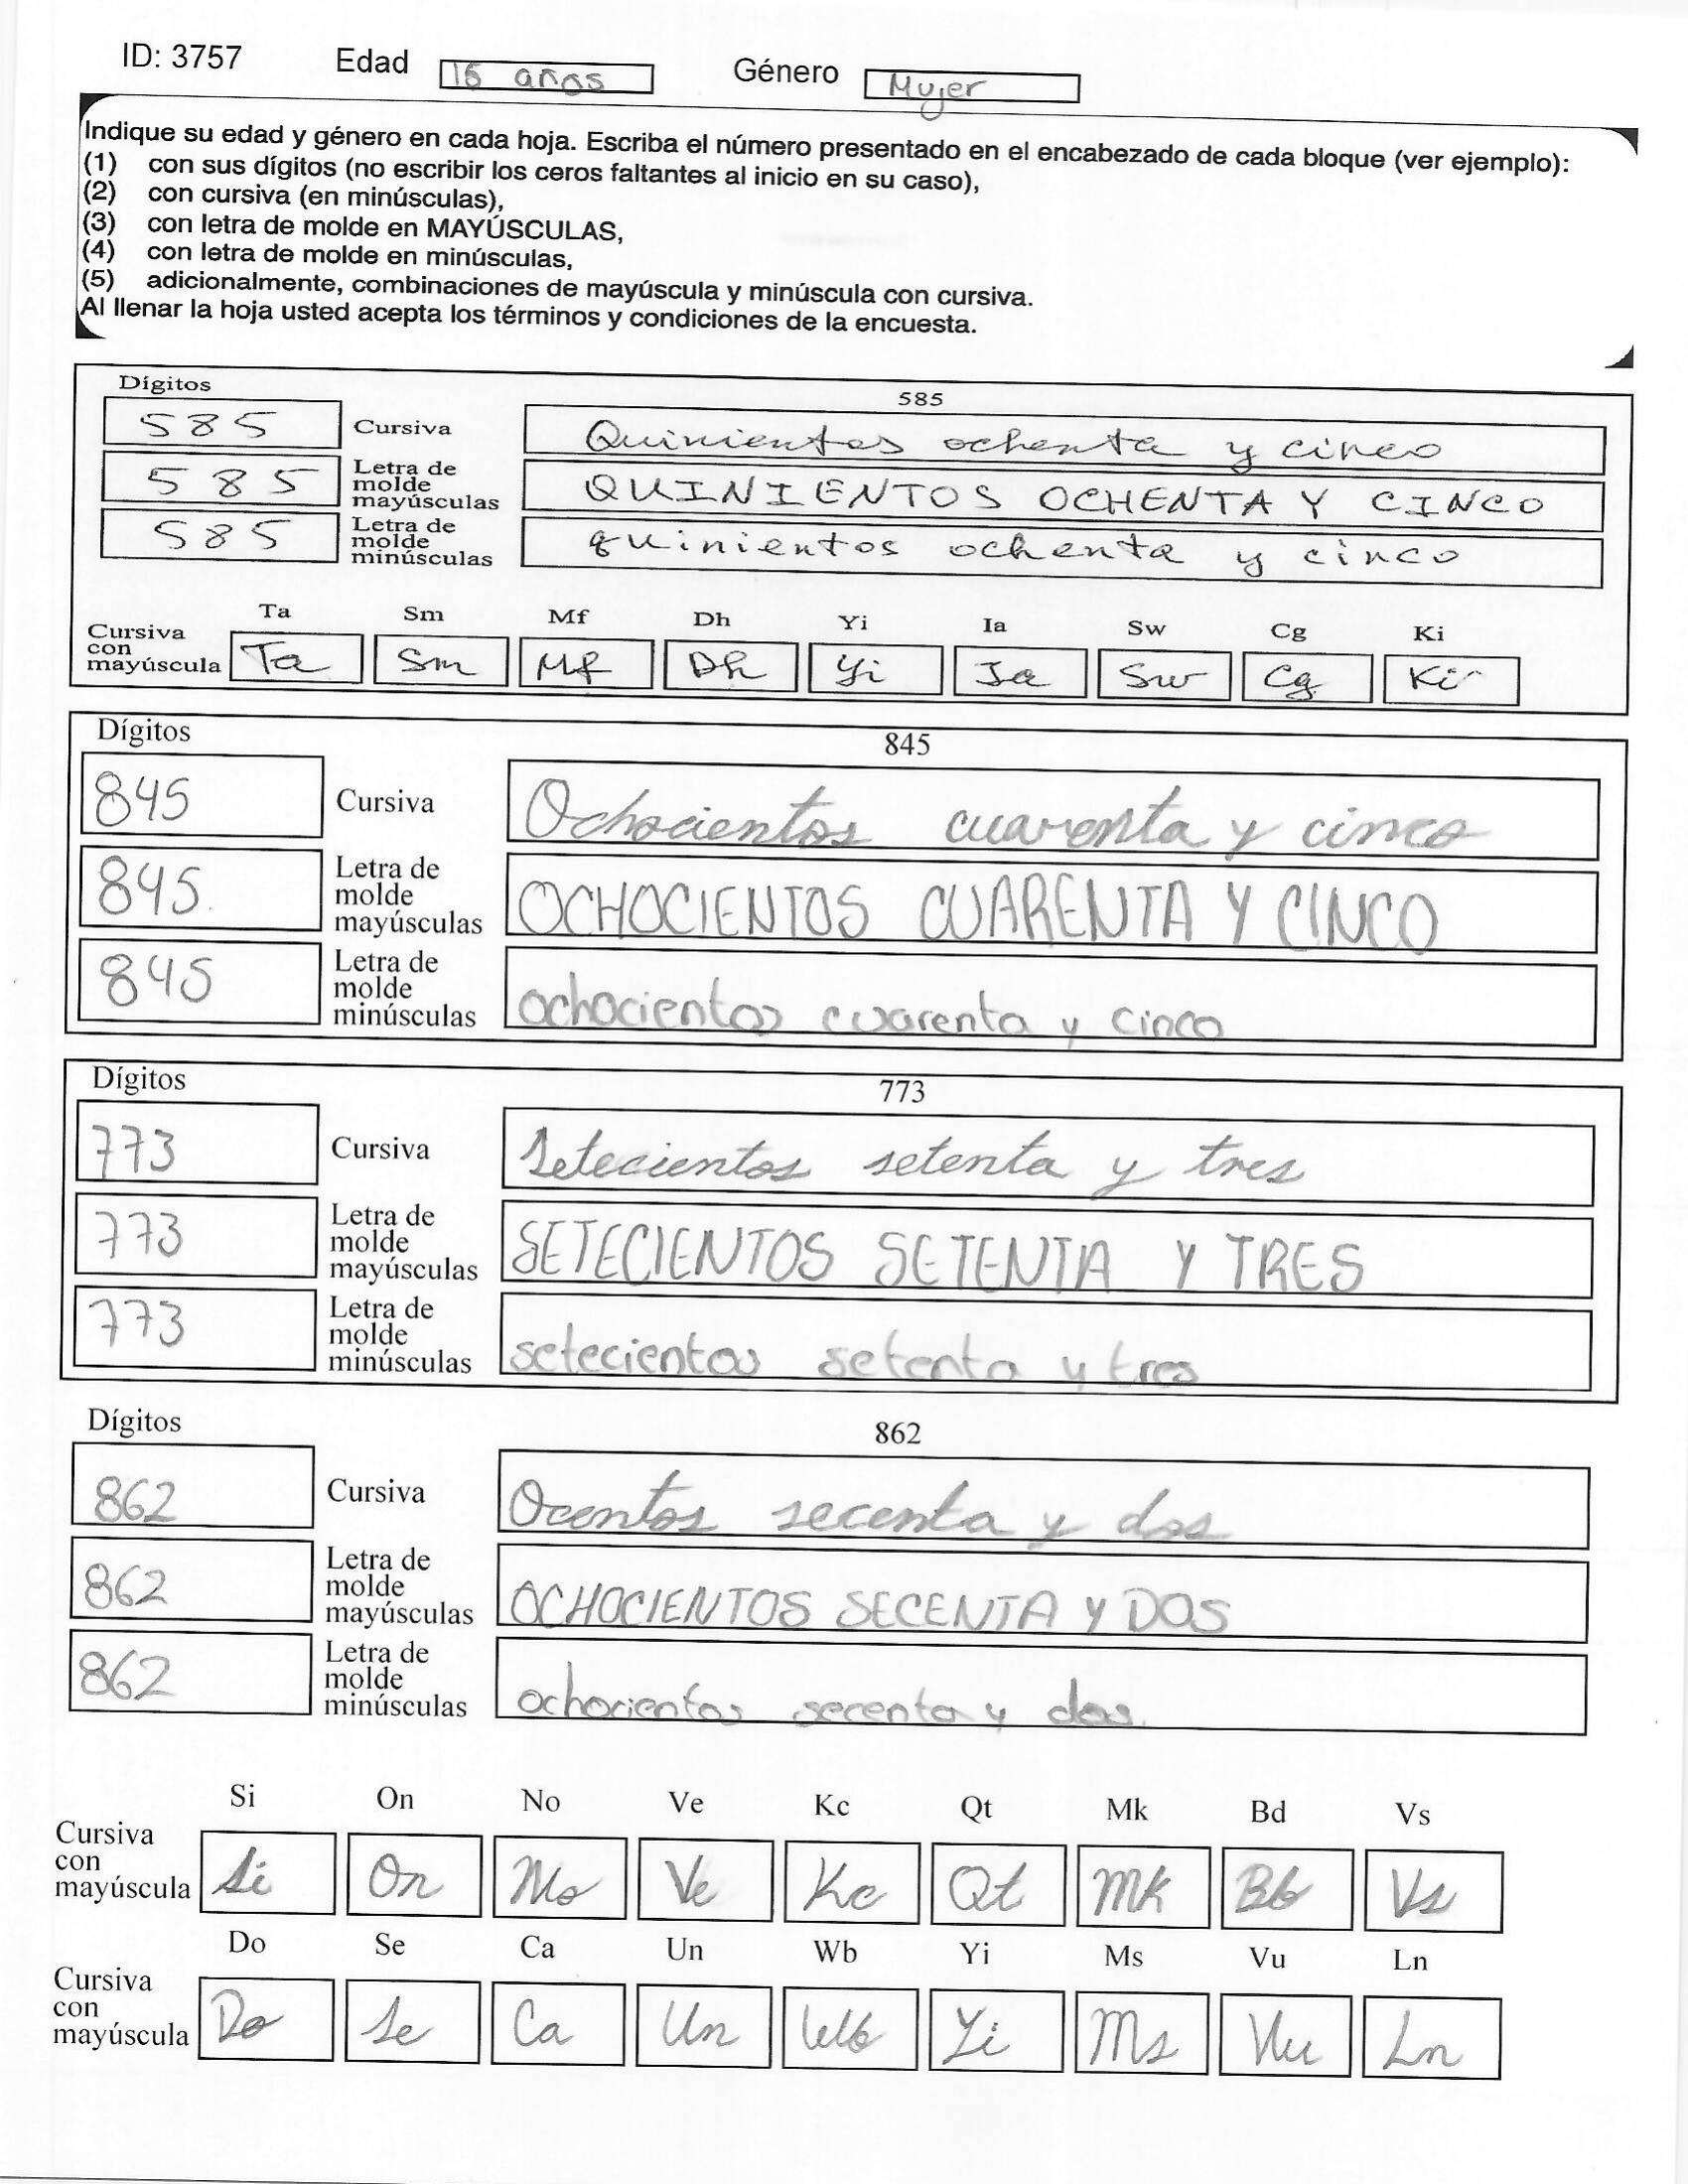 ID: 3757 Edad 16 años Género Mujer
Indique su edad y género en cada hoja. Escriba el número presentado en el encabezado de cada bloque (ver ejemplo):
(1) con sus dígitos (no escribir los ceros faltantes al inicio en su caso),
(2) con cursiva (en minúsculas),
(3) con letra de molde en MAYÚSCULAS,
(4) con letra de molde en minúsculas,
(5) adicionalmente, combinaciones de mayúscula y minúscula con cursiva.
Al llenar la hoja usted acepta los términos y condiciones de la encuesta.
Dígitos 585
585 Cursiva Quinientos ochenta y cinco
585 Letra de molde mayúsculas QUINIENTOS OCHENTA Y CINCO
585 Letra de molde minúsculas quinientos ochenta y cinco
Ta Sm Mf Dh Yi Ia Sw Cg Ki
Cursiva con mayúscula Ta Sm Mf Dh Yi Ia Sw Cg Ki
Dígitos 845
845 Cursiva Ochocientos cuarenta y cinco
845 Letra de molde mayúsculas OCHOCIENTOS CUARENTA Y CINCO
845 Letra de molde minúsculas ochocientos cuarenta y cinco
Dígitos 773
773 Cursiva Setecientos setenta y tres
773 Letra de molde mayúsculas SETECIENTOS SETENTA Y TRES
773 Letra de molde minúsculas setecientos setenta y tres
Dígitos 862
862 Cursiva Ocentos secenta y dos
862 Letra de molde mayúsculas OCHOCIENTOS SECENTA Y DOS
862 Letra de molde minúsculas ochocientos secenta y dos.
Si On No Ve Kc Qt Mk Bd Vs
Cursiva con mayúscula Si On No Ve Kc Qt Mk Bb Vs
Do Se Ca Un Wb Yi Ms Vu Ln
Cursiva con mayúscula Do Se Ca Un Wb Yi Ms Vu Ln